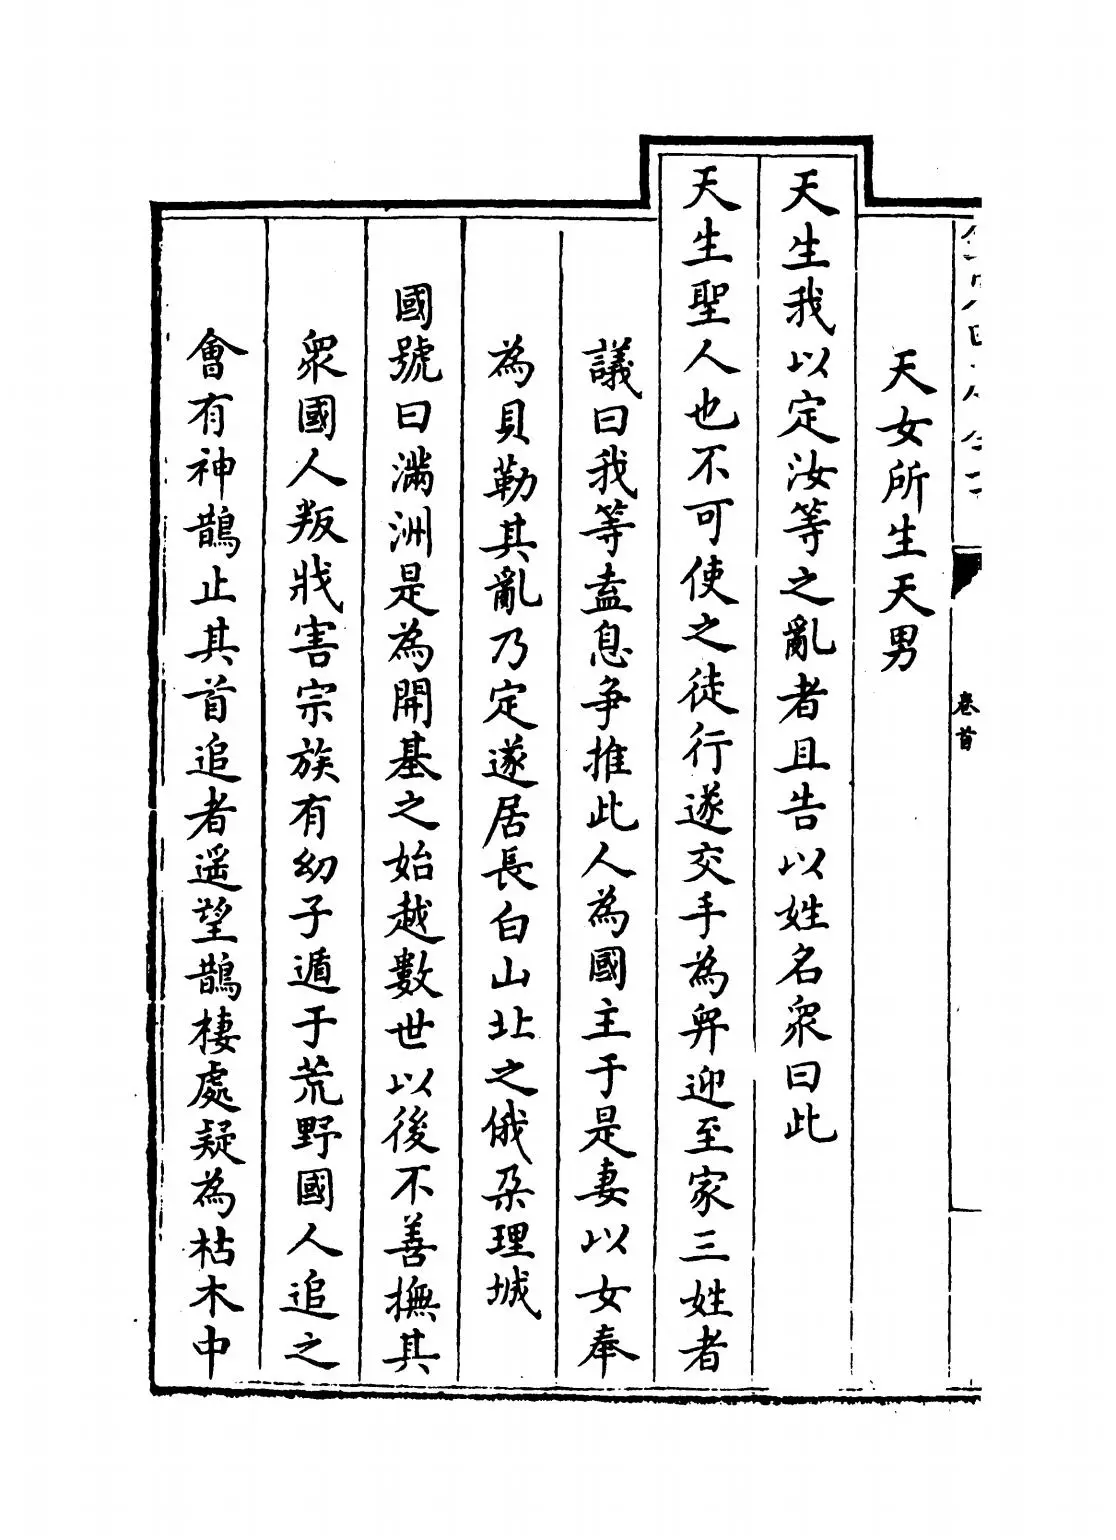 卷首
天女所生天男
天生我以定汝等之亂者且告以姓名衆曰此
天生聖人也不可使之徒行遂交手為舁迎至家三姓者
議曰我等盍息争推此人為國主于是妻以女奉
為貝勒其亂乃定遂居長白山北之俄朶理城
國號曰滿洲是為開基之始越數世以後不善撫其
衆國人叛戕害宗族有幼子遁于荒野國人追之
會有神鵲止其首追者遥望鵲棲處疑為枯木中